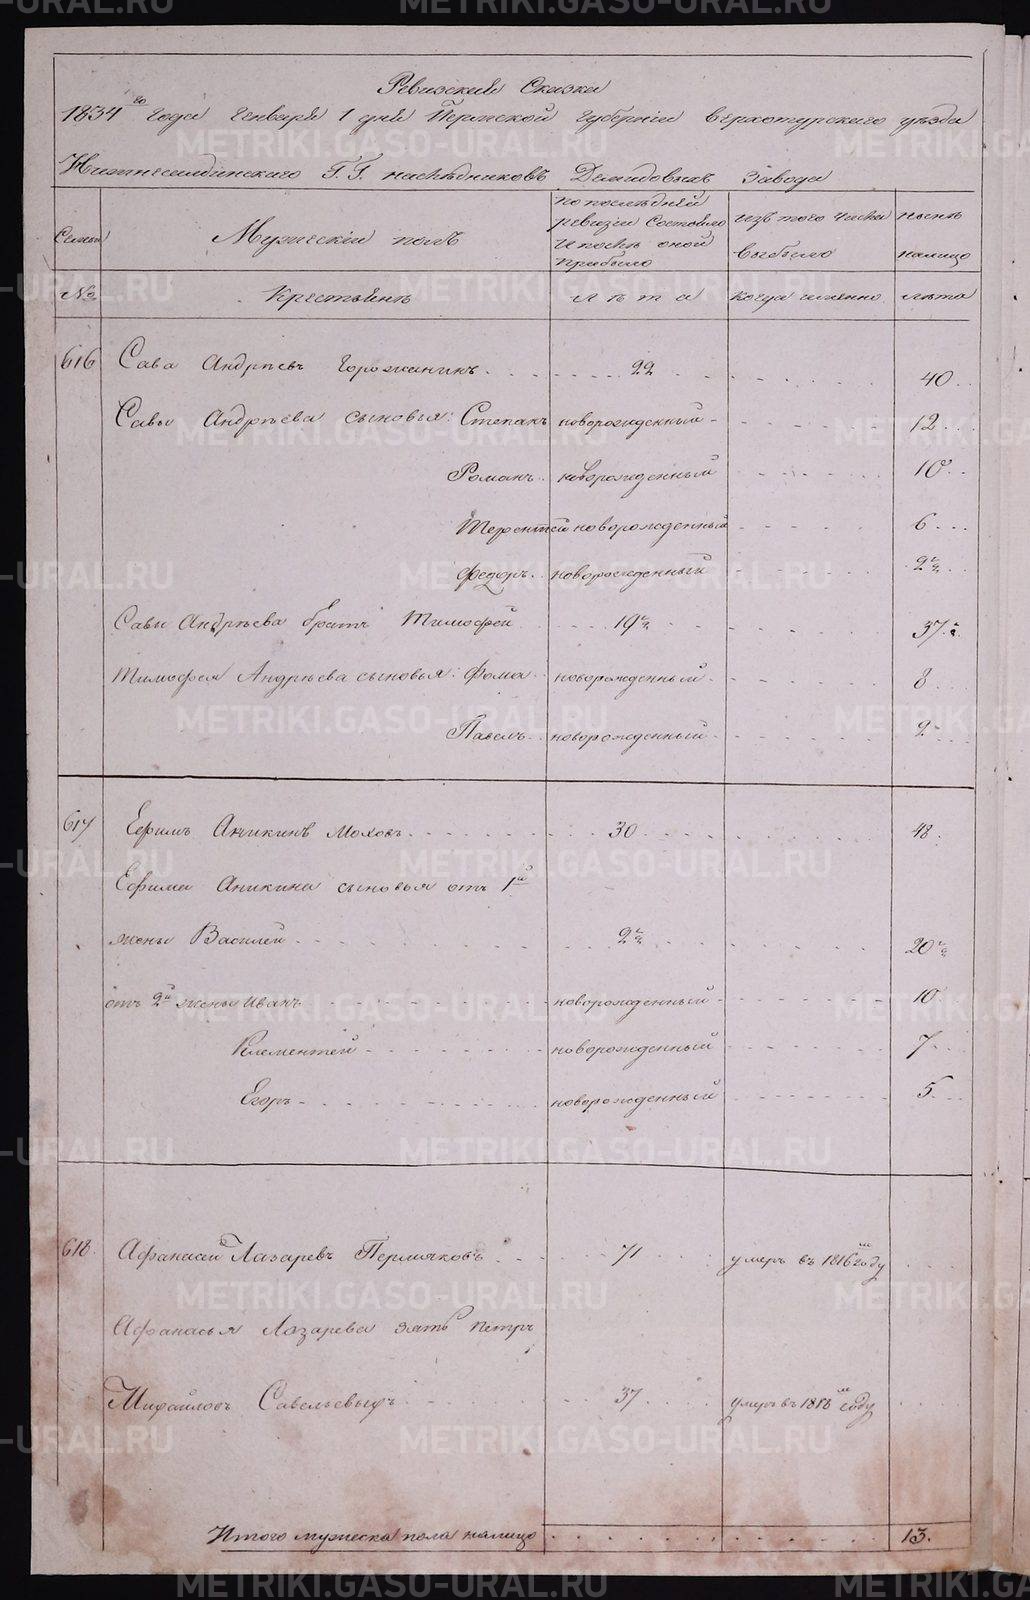 Ревизския Сказка
1834го года Генваря 1 дня Пермской Губернии Верхотурского уезда
Нижнесалдинского Г.Г. наследниковъ Демидовыхъ Завода
Семьи
Мужескій полъ
по последней ревизіи Состояло и после оной прибыло
изъ того числа выбыло
ныне налицо
№
Крестьяне
лета
когда именно
лета
616 Сава Андреевъ Горожанинъ 22 40
Савы Андреева сыновья: Степанъ новорожденный 12
Романъ новорожденный 10
Терентей новорожденный 6
Федоръ новорожденный 2½
Савы Андреева братъ Тимофей 19½ 37½
Тимофея Андреева сыновья: Фома новорожденный 8
Павелъ новорожденный 2
617 Ефимъ Аникинъ Моховъ 30 48
Ефима Аникина сыновья отъ 1й
жены Василей 2½ 20½
отъ 2й жены Иванъ новорожденный 10
Клементей новорожденный 7
Егоръ новорожденный 5
618 Афанасей Лазаревъ Пермяковъ 71 умеръ въ 1816мъ году
Афанасья Лазарева зять Петръ
Михайловъ Савельевыхъ 37 умеръ въ 1818м году
Итого мужеска пола налицо 13.
METRIKI.GASO-URAL.RU